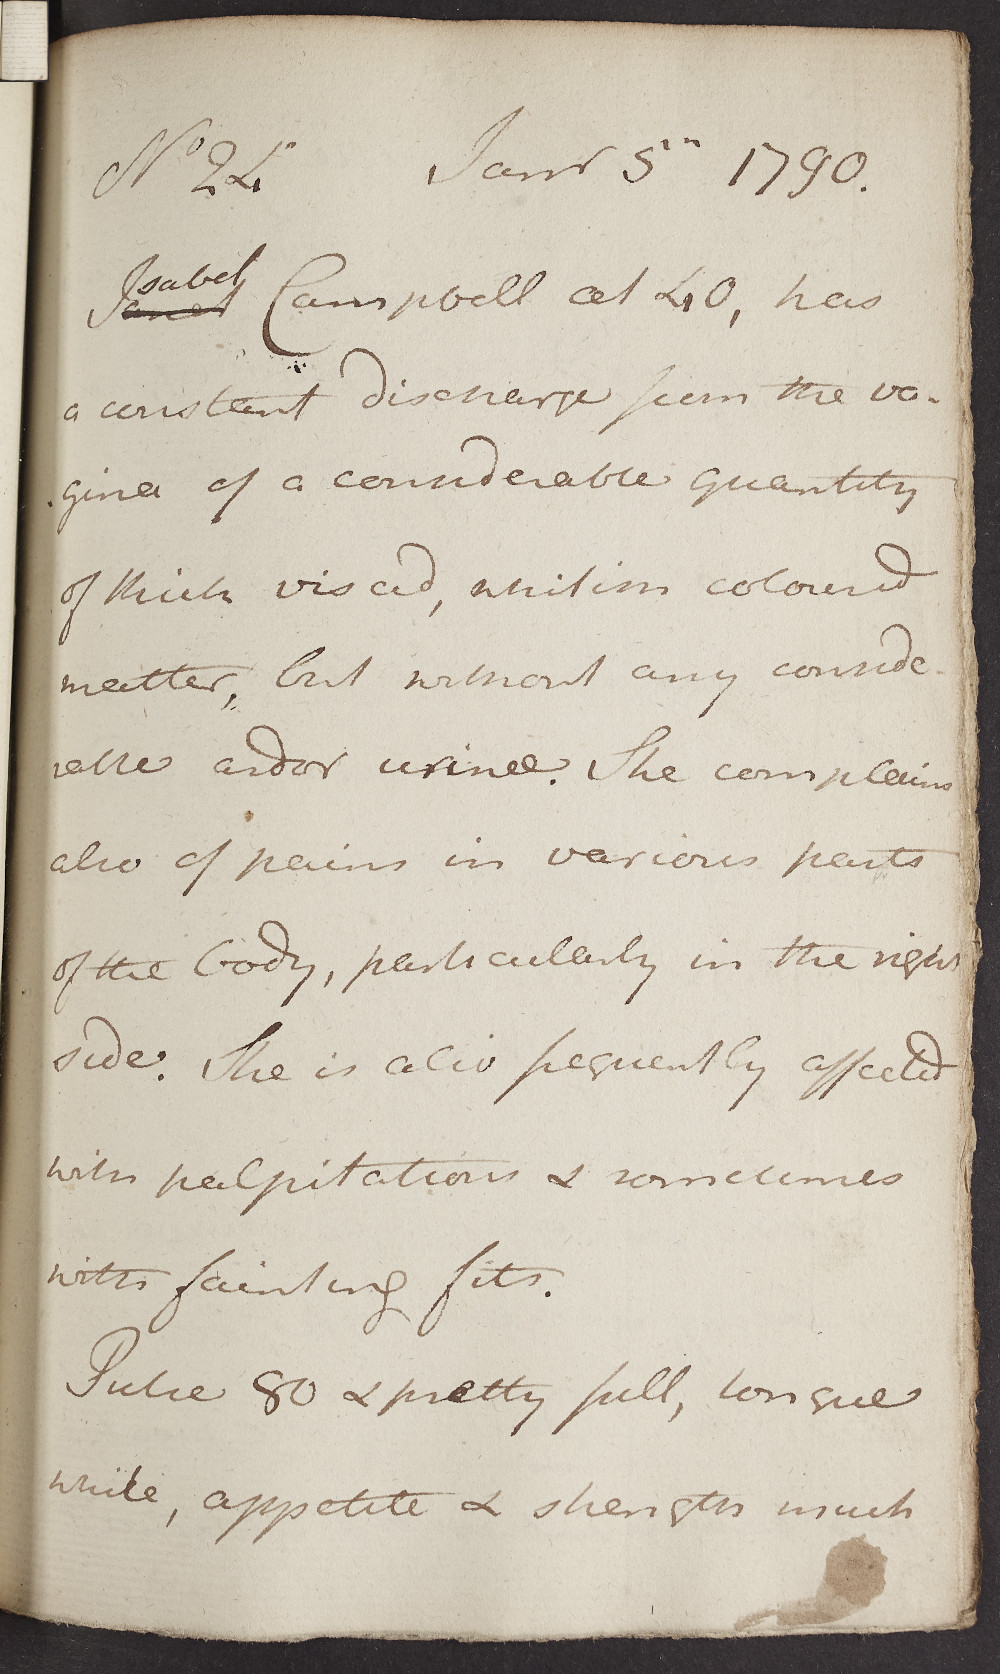 No 24 Janr 5th 1790.
Isabel
Janet Campbell æt 40, has
a constant discharge from the va-
gina of a considerable quantity
of thick viscid, whitish coloured
matter, but without any conside-
rable ardor urinæ. She complains
also of pains in various parts
of the body, particularly in the right
side. She is also frequently affected
with palpitations & sometimes
with fainting fits.
Pulse 80 & pretty full, tongue
white, appetite & strength much